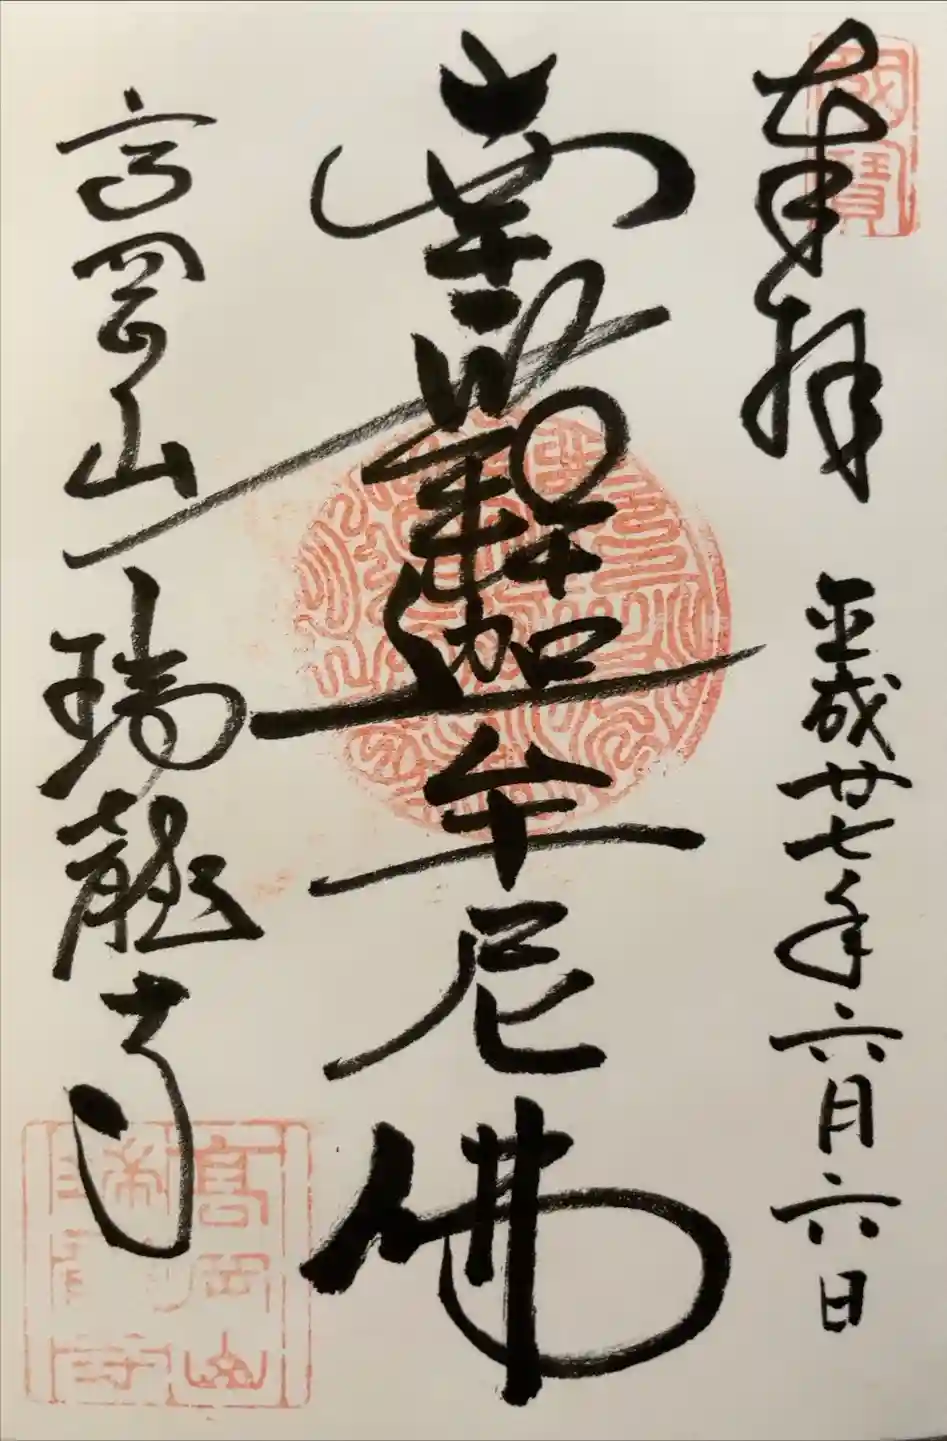 奉拝
平成廿七年六月六日
南無釈迦牟尼佛
高岡山瑞龍寺
國寶
高岡山
瑞龍寺